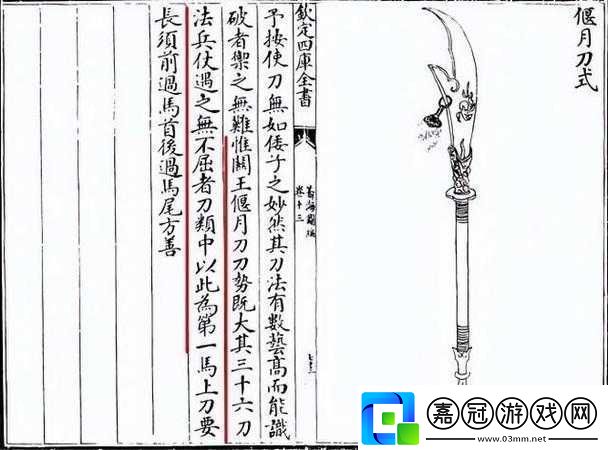 偃月刀式
欽定四庫全書
籌海圖編
卷十三
予按使刀無如倭子之妙然其刀法有數藝髙而能識
破者禦之無難惟闗王偃月刀刀勢既大其三十六刀
法兵仗遇之無不屈者刀類中以此為第一馬上刀要
長須前過馬首後過馬尾方善
嘉冠游戏网
www.03mm.net